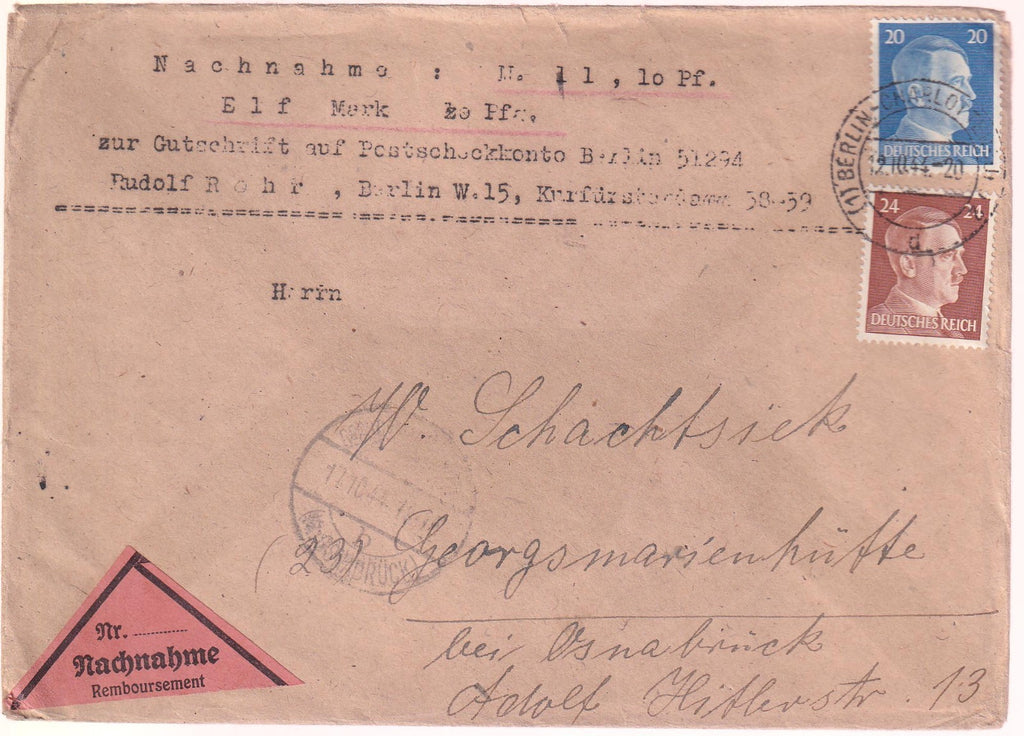 Nachnahme : M. 11,10 Pf.
Elf Mark Pfg.
zur Gutschrift auf Postscheckkonto Berlin 51294
Rudolf Rohr, Berlin W.15, Kurfürstendamm 58-59
Herrn
W. Schachtsiek
(23) Georgsmarienhütte
bei Osnabrück
Adolf Hitlerstr. 13
20 20
DEUTSCHES REICH
24 24
DEUTSCHES REICH
(1) BERLIN-CHARLOT
12.10.44.-20
d
17.10.44
b
Nr.
Nachnahme
Remboursement